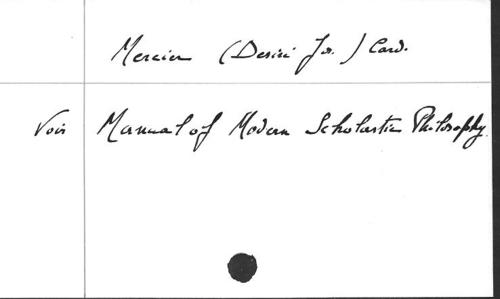 Mercier (Désiré Jos.) Card.
Voir Manual of Modern Scholastic Philosophy.